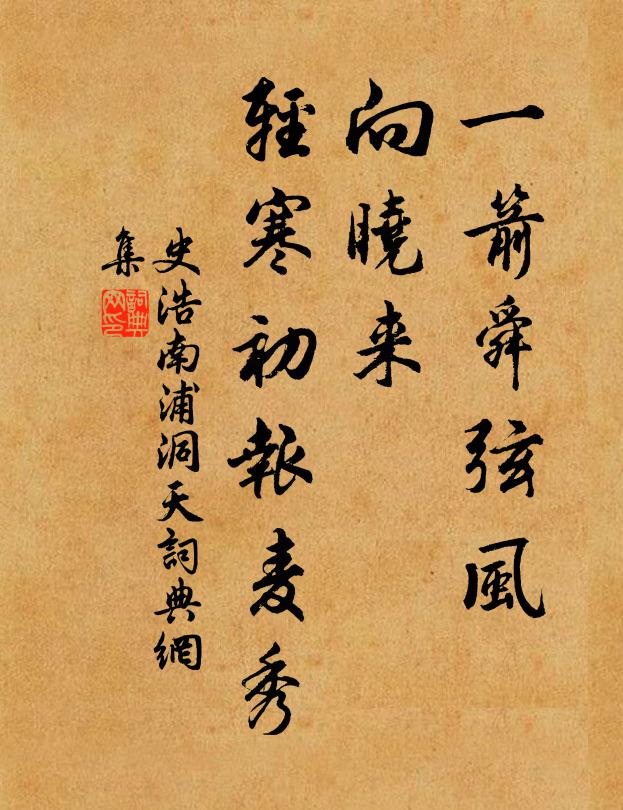 一箭舜弦風
向曉来
輕寒初報麦秀
史浩南浦洞天詞典網
集
詞典
网印